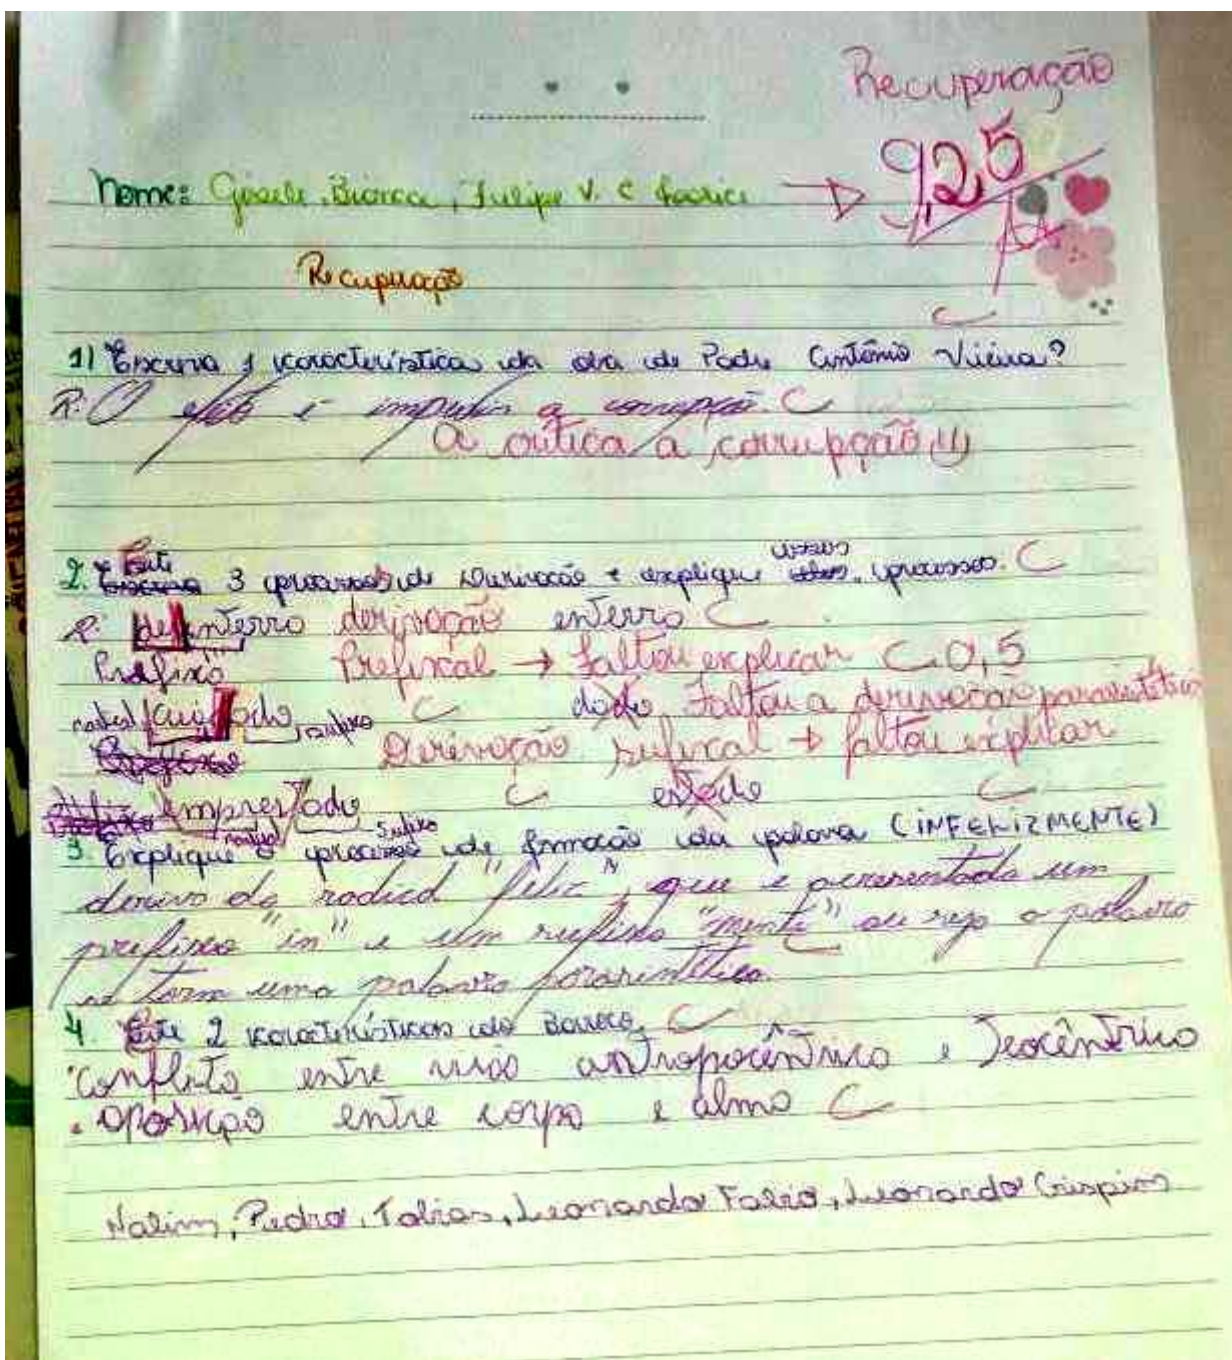 Recuperação
9,25
Nome: Gisele, Bianca, Felipe V. e
Recupuração
1) Escreva 1 característica da obra de Padre Antônio Vieira?
R: O é impedir a corrupção. C
A crítica a corrupção (1)
2. Cite 3 processos de Derivação e explique esses processos. C
R: desenterro derivação enterro C
Prefixo Prefixal → faltou explicar C 0,5
Faltou a derivação parassintética
sufixo C
Derivação sufixal → faltou explicar
emprestado C C
radical Sufixo
3. Explique o processo de formação da palavra (INFELIZMENTE)
deriva do radical "feliz", que é acresentado um
prefixo "in" e um sufixo "mente" ou seja a palavra
se torn uma palavra parasintética.
4. Cite 2 características do Barroco. C
• Conflito entre visão antropocêntrica e Teocêntrico
• oposição entre corpo e alma C
Nalim, Pedro, Tobias, Leonardo Fabio, Leonardo Crispim